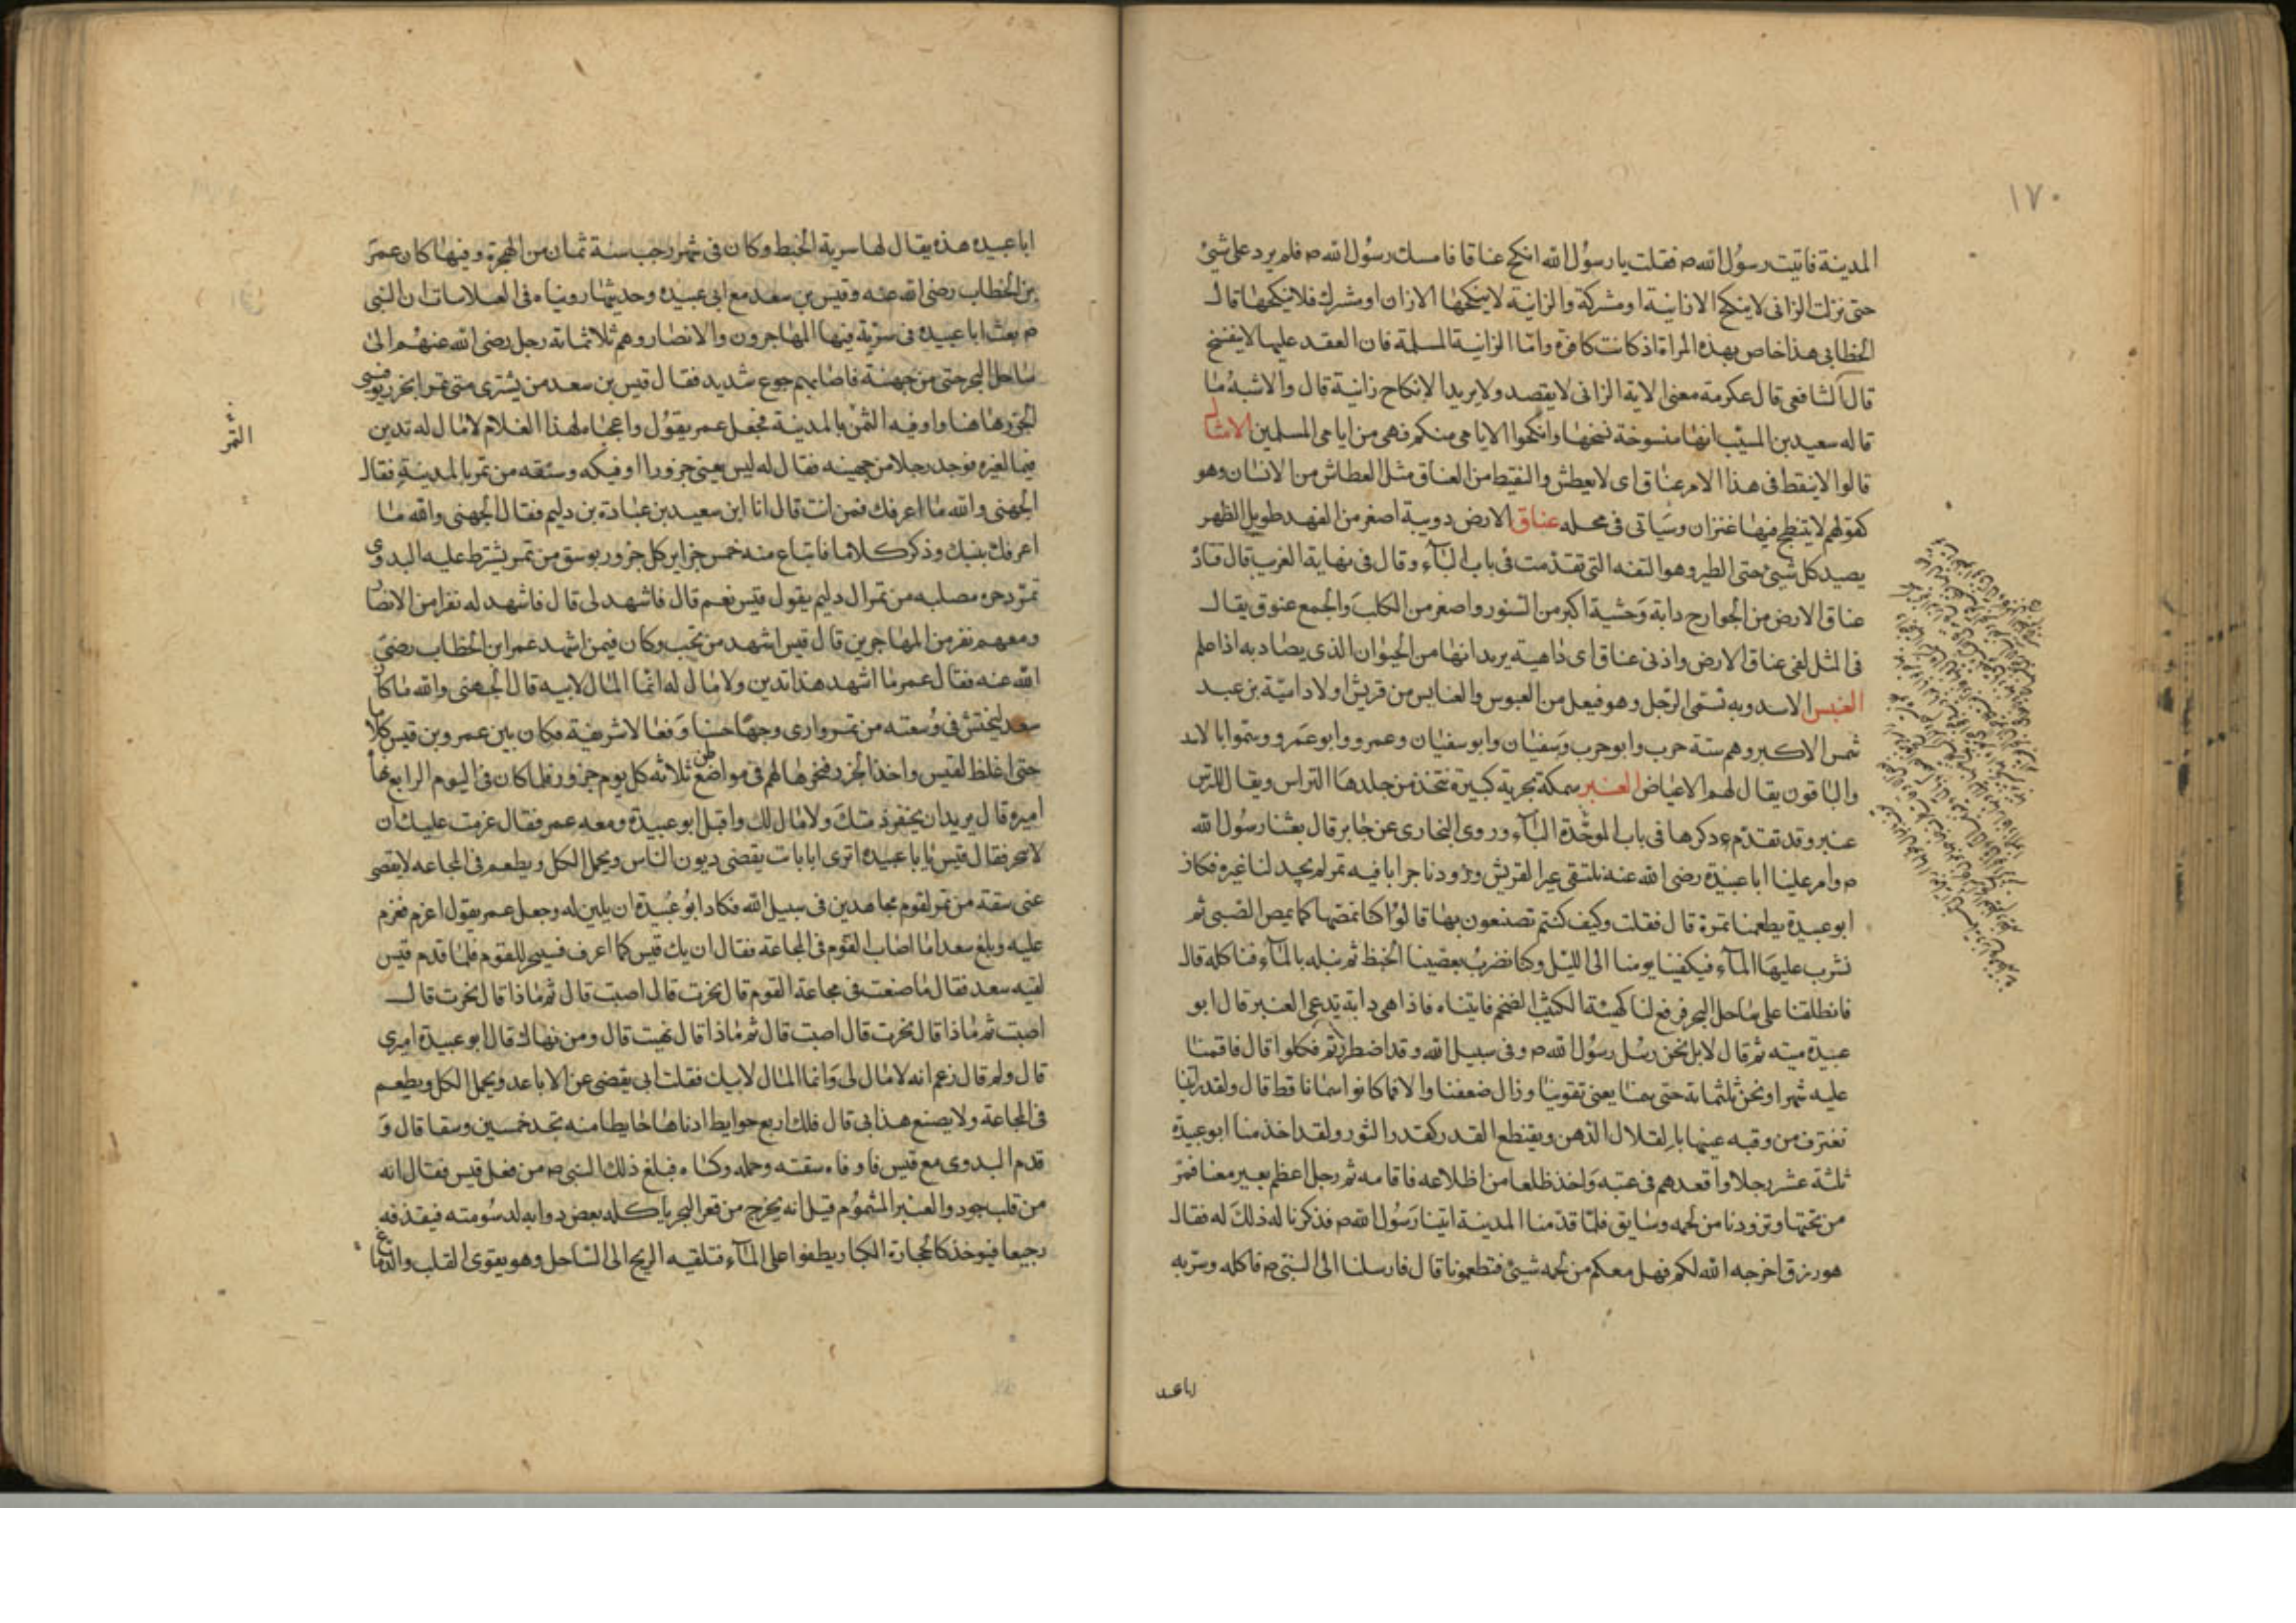 ١٧٠
المدينة فاتيت رسول الله ص فقلت يا رسول الله انكح عناقا فامسك رسول الله ص فلم يرد على شئ
حتى نزلت الزانى لا ينكح الا زانية او مشركة والزانية لا ينكحها الا زان او مشرك فلا ينكحها قال
الخطابى هذا خاص بهذه المراة اذ كانت كافرة واما الزانية المسلمة فان العقد عليها لا يفسخ
قال الشافعى قال عكرمة معنى الاية الزانى لا يقصد ولا يريد الا نكاح زانية قال والاشبه ما
قاله سعيد بن المسيب انها منسوخة نسخها وانكحوا الايامى منكم فهى من ايامى المسلمين الامثال
قالوا لا ينقط فى هذا الامر عناق اى لا يعطش والنفيط من العناق مثل العطاش من الانسان وهو
كقولهم لا ينتطح فيها عنزان وسياتى فى محله عناق الارض دويبة اصغر من الفهد طويل الظهر
يصيد كل شيئ حتى الطير وهو التفه التى تقدمت فى باب التاء وقال فى نهاية الغريب قال قتاد
عناق الارض من الجوارح دابة وحشية اكبر من السنور واصغر من الكلب والجمع عنوق يقال
فى المثل لقى عناق الارض واذنى عناق اى داهية يريد انها من الحيوان الذى يصاد به اذا علم
العنبس الاسد وبه تسمى الرجل وهو فيعل من العبوس والعنابس من قريش اولاد امية بن عبد
شمس الاكبر وهم ستة حرب وابو حرب وسفيان وابو سفيان وعمرو وابو عمرو وسموا بالاسد
والباقون يقال لهم الاعياض العنبر سمكة بحرية كبيرة تتخذ من جلدها التراس ويقال للترس
عنبر وقد تقدم ذكرها فى باب الموحدة البآء وروى البخارى عن جابر قال بعثنا رسول الله
ص وامر علينا ابا عبيدة رضى الله عنه نلتقى عيرا لقريش وزودنا جرابا فيه تمر لم يجد لنا غيره فكان
ابو عبيدة يطعمنا تمرة قال فقلت وكيف كنتم تصنعون بها قالوا كنا نمضها كما يمص الصبى ثم
نشرب عليها المآء فيكفينا يومنا الى الليل وكنا نضرب بعصينا الخبط ثم نبله بالمآء فناكله قال
فانطلقنا على ساحل البحر فرفع لنا كهيئة الكثيب الضخم فاتيناه فاذا هى دابة تدعى العنبر قال ابو
عبيدة ميته ثم قال لا بل نحن رسل رسول الله ص وفى سبيل الله وقد اضطررتم فكلوا قال فاقمنا
عليه شهرا ونحن ثلثمائة حتى سمنا يعنى تقوينا وزال ضعفنا والا فما كانوا سمانا قط قال ولقد راتينا
نغترف من وقبه عينها بالقلال الدهن ويقتطع القدر كقدر الثور ولقد اخذ منا ابو عبيدة
ثلثة عشر رجلا واقعدهم فى عتبه واخذ ظلعا من اظلاعه فاقامه ثم رحل اعظم بعير معنا فمر
من تحتها وتزودنا من لحمه وشايق فلما قدمنا المدينة اتينا رسول الله ص فذكرنا له ذلك له فقال
هو رزق اخرجه الله لكم فهل معكم من لحمه شيئ فتطعمونا قال فارسلنا الى النبى ص فاكله وسريه
اباعبد
ابا عبيده هذه يقال لها سرية الخبط وكان فى شهر رجب سنة ثمان من الهجرة وفيها كان عمر
بن الخطاب رضى الله عنه وقيس بن سعد مع ابى عبيده وحديثها رويناه فى الغلاسات ان النبى
ص بعث ابا عبيده فى سرية فيها المهاجرون والانصار وهم ثلاثمائة رجل رضى الله عنهم الى
ساحل البحر حتى من جهنة فاصابهم جوع شديد فقال قيس بن سعد من يشترى منى تمرا بجزر يوفى
الجزر هاهنا واوفيه الثمن بالمدينة فجعل عمر يقول واعجباه لهذا الغلام لا مال له تدين
فيما لغيره فوجد رجلا من جهينه فقال له ليس يعنى جزورا اوفيكه وسقه من تمر بالمدينة فقال
الجهنى والله ما اعرفك فمن انت قال انا ابن سعيد بن عبادة بن دليم فقال الجهنى والله ما
اعرفك بنبك وذكر كلاما فابتاع منه خمس جزاير كل جزور بوسق من تمر يشترط عليه البدوى
تمر دحره مصلبه من تمر ال دليم يقول قيس نعم قال فاشهد لى قال فاشهد له نفرا من الانصار
ومعهم نفر من المهاجرين قال قيس اشهد من تحب وكان فيمن اشهد عمر ابن الخطاب رضى
الله عنه فقال عمر ما اشهد هذا تدين ولا مال له انما المال لابيه قال الجهنى والله ما كان
سعد ليخنش فى وسعته من تمر وارى وجها حسنا وفعالا شريفة فكان بين عمر وبن قيس كلاما
حتى اغلظ لقيس واخذ الجزر فنحرها لهم فى مواضع ثلاثه كل يوم جزور فلما كان فى اليوم الرابع نهاه
اميره قال يريد ان يخفر ذمتك ولا مال لك واقبل ابو عبيدة ومعه عمر فقال عزمت عليك ان
لا تنحر فقال قيس يا با عبيده اترى ابا ثابت يقضى ديون الناس ويحمل الكل ويطعم فى المجاعه لا يقضى
عنى سقة من تمر لقوم مجاهدين فى سبيل الله فكاد ابو عبيدة ان يلين له وجعل عمر يقول اعزم فعزم
عليه وبلغ سعدا ما اصاب القوم فى المجاعة فقال ان يك قيس كما اعرف فسينحر للقوم فلما قدم قيس
لقيه سعد فقال ما صنعت فى مجاعة القوم قال نحرت قال اصبت قال ثم ماذا قال نحرت قال
اصبت ثم ماذا قال نحرت قال اصبت قال ثم ماذا قال نهيت قال ومن نهاك قال ابو عبيدة اميرى
قال ولم قال زعم انه لا مال لى وانما المال لابيك فقلت ابى يقضى عن الاباعد ويحمل الكل ويطعم
فى المجاعة ولا يصنع هذا بى قال فلك اربع حوايط ادناها حايطا منه تجد خمسين وسقا قال و
قدم البدوى مع قيس فاوفاه سقته وحمله وكساه فبلغ ذلك النبى ص من فعل قيس فقال انه
من قلب جود والعنبر المشموم قيل انه يخرج من قعر البحر ياكله بعض دوابه لدسومته فيقذفه
رجيعا فيوخذ كالحجارة الكبار يطفوا على المآء فتلقيه الريح الى الساحل وهو يقوى القلب والدماغ
التمر